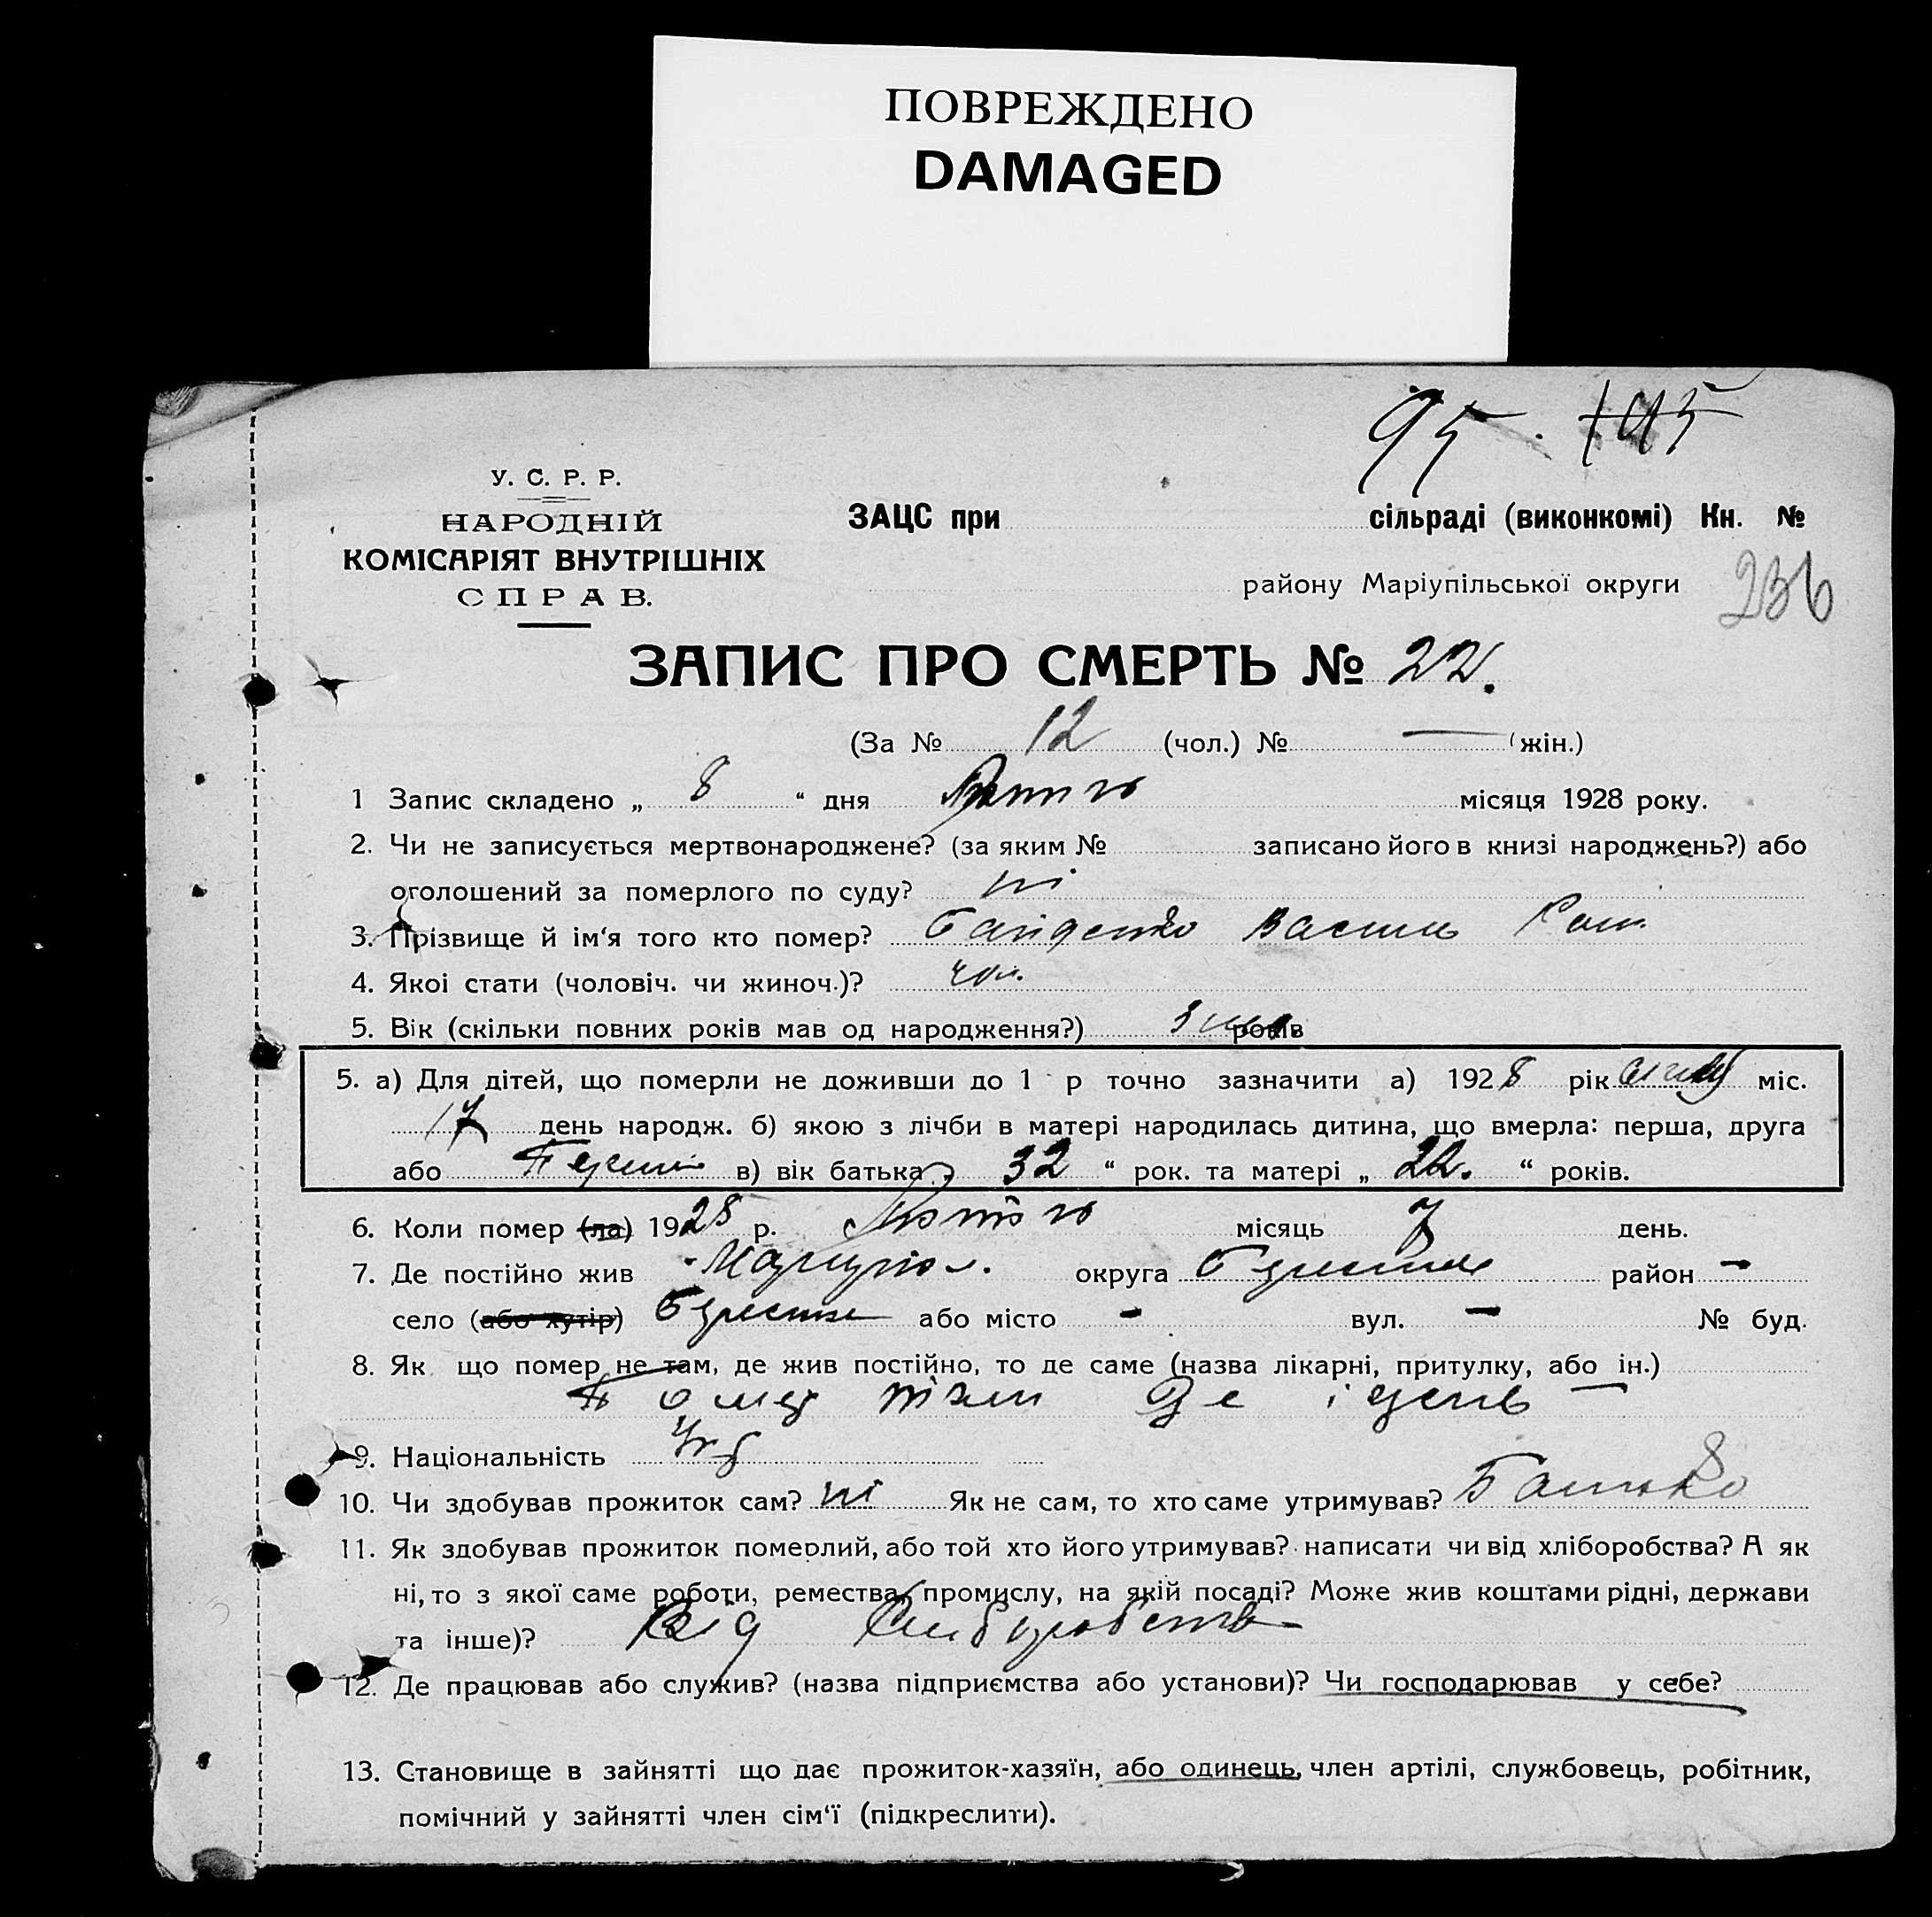 ПОВРЕЖДЕНО
DAMAGED
95. 195
У. С. Р. Р.
НАРОДНІЙ
КОМІСАРІЯТ ВНУТРІШНІХ
СПРАВ.
ЗАЦС при сільраді (виконкомі) Кн. №
району Маріупільської округи 236
ЗАПИС ПРО СМЕРТЬ № 22.
(За № 12 (чол.) № — (жін.)
1 Запис складено „ 8 “ дня Лютого місяця 1928 року.
2. Чи не записується мертвонароджене? (за яким № записано його в книзі народжень?) або
оголошений за померлого по суду? ні
3. Прізвище й ім‘я того кто помер? Василь
4. Якоі стати (чоловіч. чи жиноч.)? чол.
5. Вік (скільки повних років мав од народження?) років
5. а) Для дітей, що померли не доживши до 1 р точно зазначити а) 1928 рік міс.
17 день народж. б) якою з лічби в матері народилась дитина, що вмерла: перша, друга
або в) вік батька „ 32 “ рок. та матері „ 22. “ років.
6. Коли помер (ла) 1928 р. Лютого місяць 7 день.
7. Де постійно жив Маріупол. округа район -
село (або хутір) або місто - вул. - № буд.
8. Як що помер не там, де жив постійно, то де саме (назва лікарні, притулку, або ін.)
Помер там де
9. Національність Укр
10. Чи здобував прожиток сам? ні Як не сам, то хто саме утримував? Батько
11. Як здобував прожиток померлий, або той хто його утримував? написати чи від хліборобства? А як
ні, то з якої саме роботи, ремества, промислу, на якій посаді? Може жив коштами рідні, держави
та інше)? Від Хліборобства
12. Де працював або служив? (назва підприємства або установи)? Чи господарював у себе?
13. Становище в зайнятті що дає прожиток-хазяїн, або одинець, член артілі, службовець, робітник,
помічний у зайнятті член сім‘ї (підкреслити).